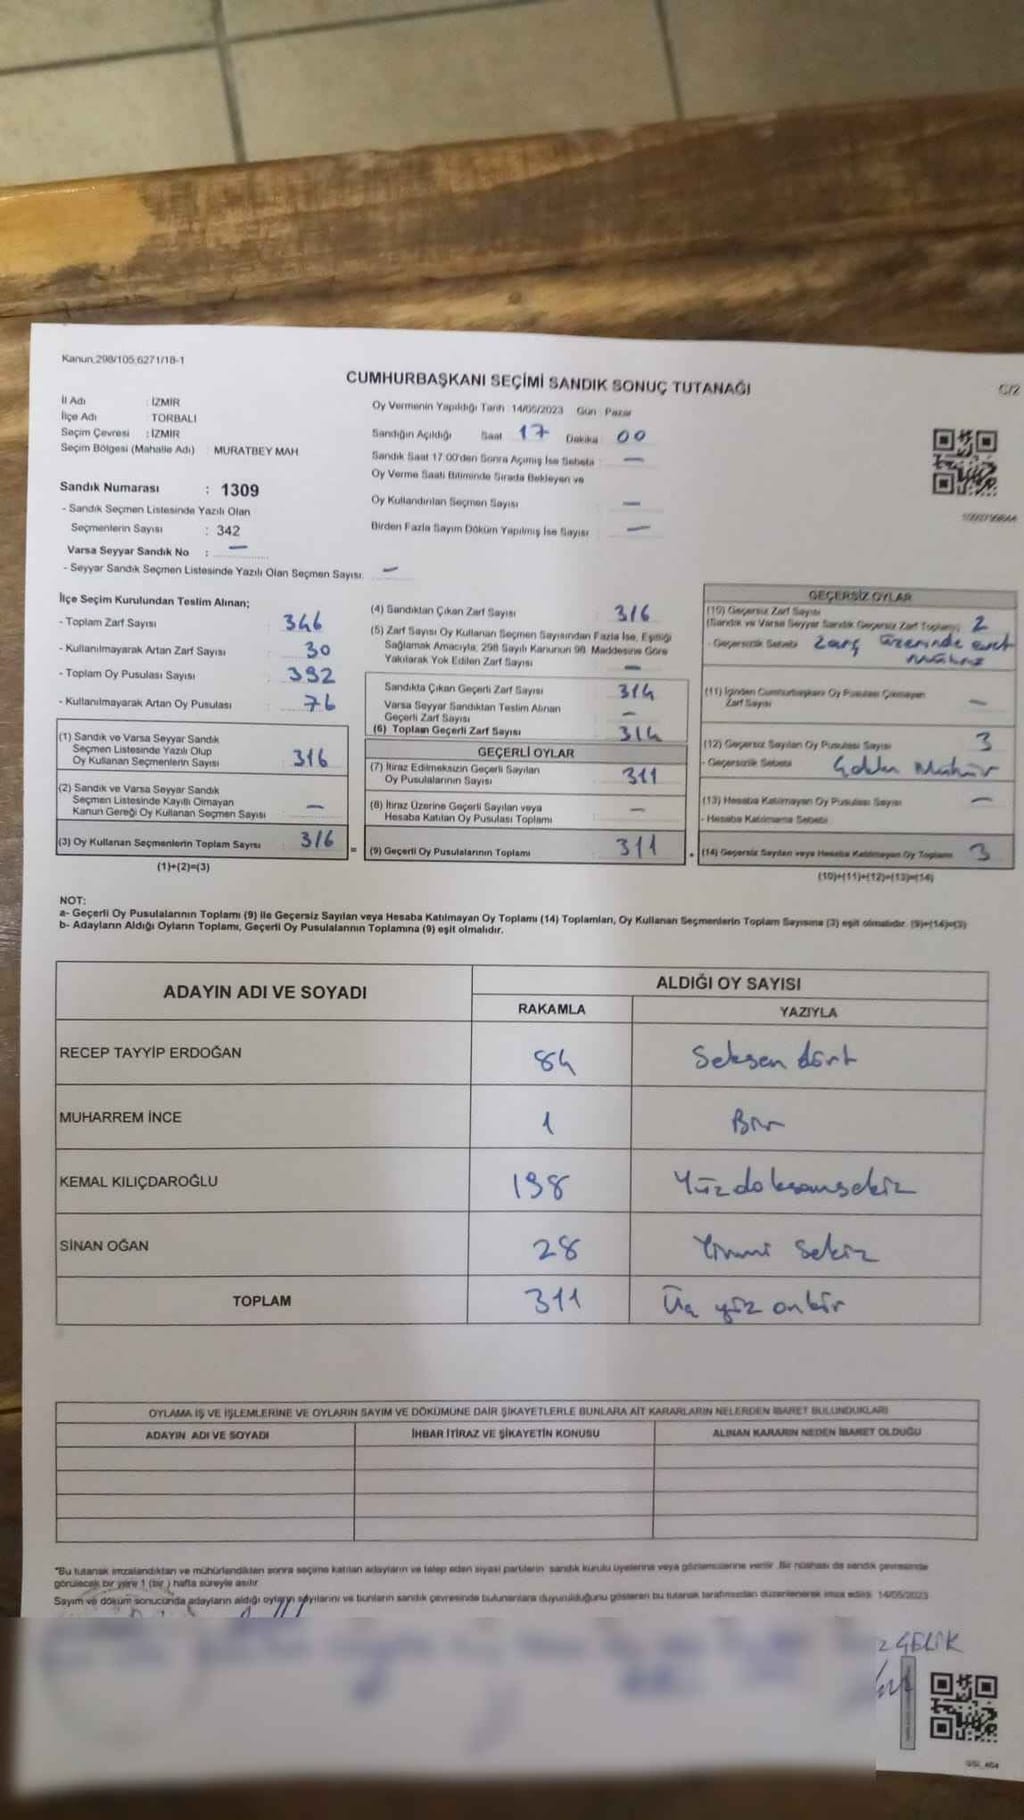 Kanun.298/105,6271/18-1
CUMHURBAŞKANI SEÇİMİ SANDIK SONUÇ TUTANAĞI
C/2
İl Adı : İZMİR
İlçe Adı : TORBALI
Seçim Çevresi : İZMİR
Seçim Bölgesi (Mahalle Adı) : MURATBEY MAH
Oy Vermenin Yapıldığı Tarih 14/05/2023 Gün Pazar
Sandığın Açıldığı Saat 17 Dakika 00
Sandık Saat 17:00'den Sonra Açımış İse Sebebi : —
Oy Verme Saati Bitiminde Sırada Bekleyen ve
Oy Kullandırılan Seçmen Sayısı —
Birden Fazla Sayım Döküm Yapılmış İse Sayısı —
Sandık Numarası : 1309
- Sandık Seçmen Listesinde Yazılı Olan
Seçmenlerin Sayısı : 342
Varsa Seyyar Sandık No : —
- Seyyar Sandık Seçmen Listesinde Yazılı Olan Seçmen Sayısı: —
İlçe Seçim Kurulundan Teslim Alınan;
- Toplam Zarf Sayısı 346
- Kullanılmayarak Artan Zarf Sayısı 30
- Toplam Oy Pusulası Sayısı 392
- Kullanılmayarak Artan Oy Pusulası 76
(1) Sandık ve Varsa Seyyar Sandık
Seçmen Listesinde Yazılı Olup
Oy Kullanan Seçmenlerin Sayısı 316
(2) Sandık ve Varsa Seyyar Sandık
Seçmen Listesinde Kayıtlı Olmayan
Kanun Gereği Oy Kullanan Seçmen Sayısı —
(3) Oy Kullanan Seçmenlerin Toplam Sayısı 316 =
(1)+(2)=(3)
(4) Sandıktan Çıkan Zarf Sayısı 316
(5) Zarf Sayısı Oy Kullanan Seçmen Sayısından Fazla İse, Eşitliği
Sağlamak Amacıyla, 298 Sayılı Kanunun 98. Maddesine Göre
Yakılarak Yok Edilen Zarf Sayısı —
Sandıkta Çıkan Geçerli Zarf Sayısı 314
Varsa Seyyar Sandıktan Teslim Alınan
Geçerli Zarf Sayısı —
(6) Toplam Geçerli Zarf Sayısı 314
GEÇERLİ OYLAR
(7) İtiraz Edilmeksizin Geçerli Sayılan
Oy Pusulalarının Sayısı 311
(8) İtiraz Üzerine Geçerli Sayılan veya
Hesaba Katılan Oy Pusulası Toplamı —
(9) Geçerli Oy Pusulalarının Toplamı 311
GEÇERSİZ OYLAR
(10) Geçersiz Zarf Sayısı
(Sandık ve Varsa Seyyar Sandık Geçersiz Zarf Toplamı) 2
- Geçersizlik Sebebi Zarf üzerinde evet
mührü
(11) İçinden Cumhurbaşkanı Oy Pusulası Çıkmayan
Zarf Sayısı —
(12) Geçersiz Sayılan Oy Pusulası Sayısı 3
- Geçersizlik Sebebi Çoklu Mühür
(13) Hesaba Katılmayan Oy Pusulası Sayısı —
- Hesaba Katılmama Sebebi
(14) Geçersiz Sayılan veya Hesaba Katılmayan Oy Toplamı 3
(10)+(11)+(12)+(13)=(14)
NOT:
a- Geçerli Oy Pusulalarının Toplamı (9) ile Geçersiz Sayılan veya Hesaba Katılmayan Oy Toplamı (14) Toplamları, Oy Kullanan Seçmenlerin Toplam Sayısına (3) eşit olmalıdır. (9)+(14)=(3)
b- Adayların Aldığı Oyların Toplamı, Geçerli Oy Pusulalarının Toplamına (9) eşit olmalıdır.
ADAYIN ADI VE SOYADI
ALDIĞI OY SAYISI
RAKAMLA YAZIYLA
RECEP TAYYİP ERDOĞAN 84 Seksen dört
MUHARREM İNCE 1 Bir
KEMAL KILIÇDAROĞLU 198 Yüzdoksansekiz
SİNAN OĞAN 28 Yirmi sekiz
TOPLAM 311 Üç yüz onbir
OYLAMA İŞ VE İŞLEMLERİNE VE OYLARIN SAYIM VE DÖKÜMÜNE DAİR ŞİKAYETLERLE BUNLARA AİT KARARLARIN NELERDEN İBARET BULUNDUKLARI
ADAYIN ADI VE SOYADI İHBAR İTİRAZ VE ŞİKAYETİN KONUSU ALINAN KARARIN NEDEN İBARET OLDUĞU
"Bu tutanak imzalandıktan ve mühürlendikten sonra seçime katılan adayların ve talep eden siyasi partilerin sandık kurulu üyelerine veya gözlemcilerine verilir. Bir nüshası da sandık çevresinde
görülecek bir yere 1 (bir ) hafta süreyle asılır.
Sayım ve döküm sonucunda adayların aldığı oyların sayılarını ve bunların sandık çevresinde bulunanlara duyurulduğunu gösteren bu tutanak tarafımızdan düzenlenerek imza edildi. 14/05/2023
ÇELİK